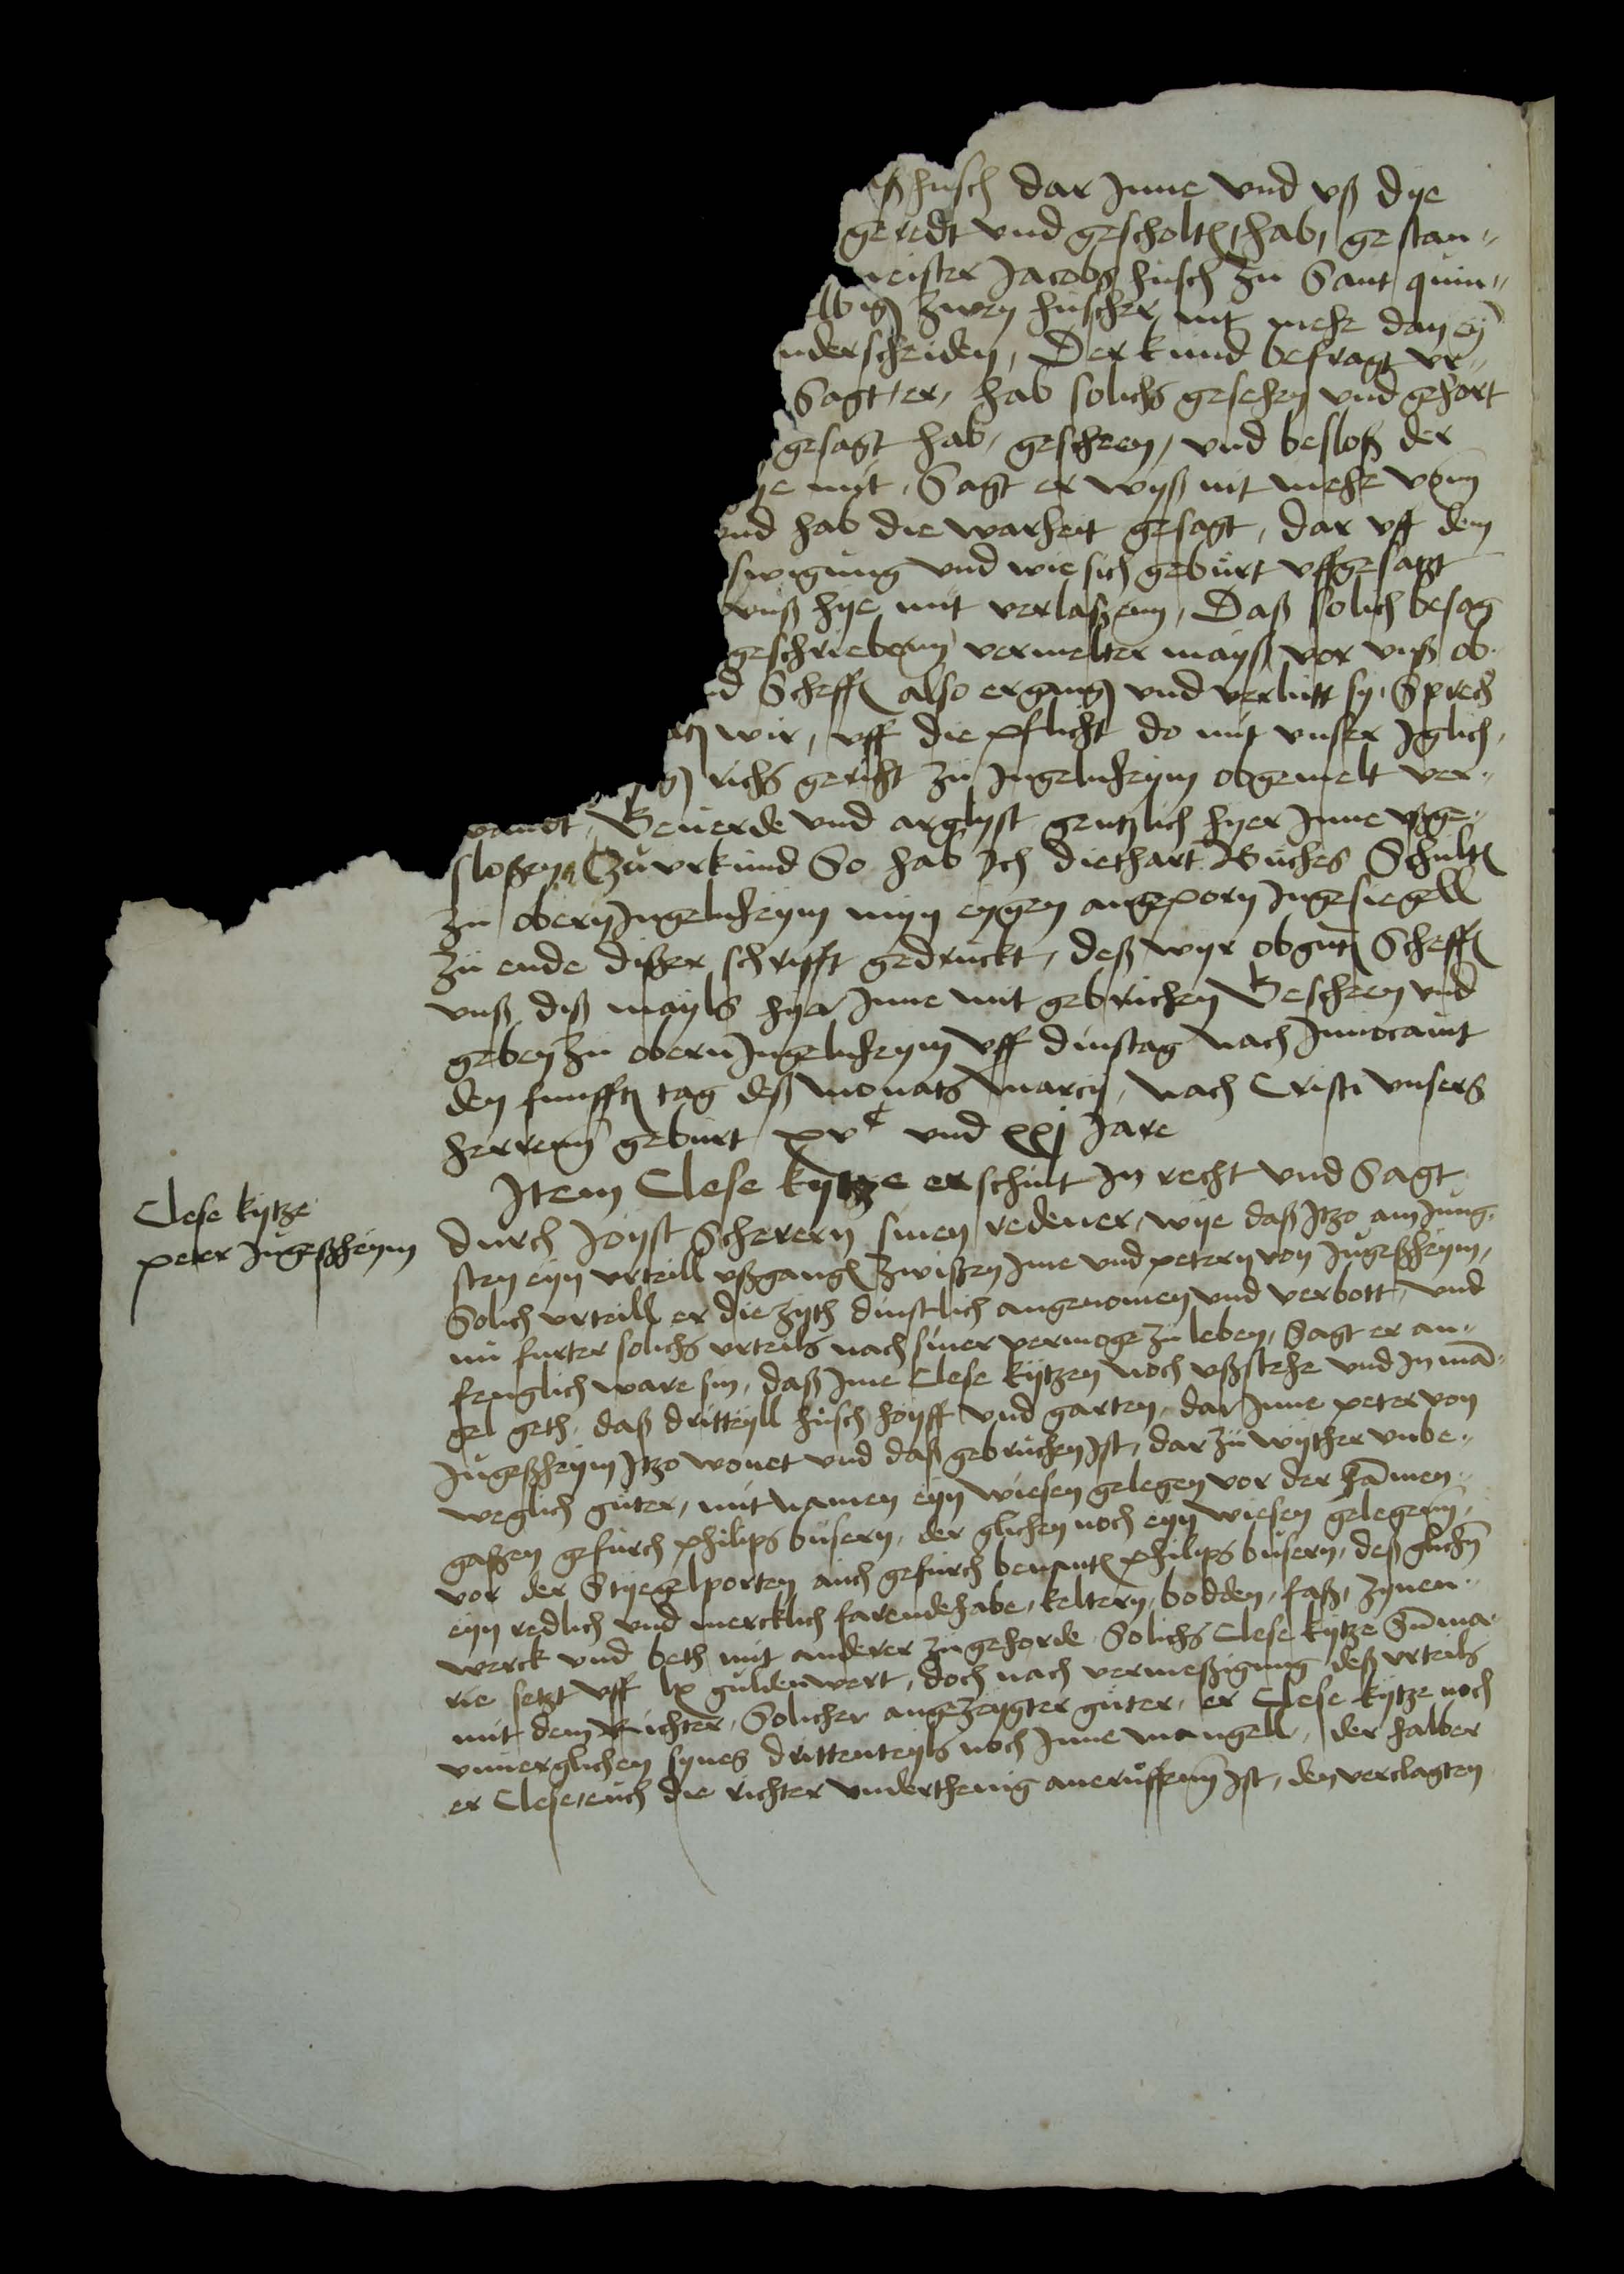 husch dar Inne vnd vß dye
geredt vnd gescholten, hab, gestan-
meister Jacobs husch zu Sant quin-
zwey huscher nit mehe dan eyn
nderscheiden, Der kund befragt vr-
Sagt er, hab solichs gesehen vnd gehort
gesagt hab, gescheen, vnd besloß der
ye mit, Sagt er wyß nit mehe vonn
vnd hab die warheit gesagt, dar vff dem
swigung vnd wie sich geburt vffgesatzt
vnß hye mit verlaßenn, Daß solich besag
geschriebenn vermelter mayß vor vnß ob-
d Scheffen also ergangen vnd verlutt sy, Sprech
wir, vff die pflicht do mit vnser Iglich,
richs gericht zu Ingelnheym obgemelt ver-
vandt, Geuerde vnd arglyst gentzlich hyer Inne vßge-
sloßen, Zu vrkund So hab Ich diethart Buches Schulten
zu obern Ingelnheym myn eygen angeporn Ingesiegell
zu ende dißer schrifft gedruckt, deß wyr obgnten Scheffen
vnß diß mayls hyer Inne mit gebruchen Gescheen vnd
geben zu obern Ingelnheym vff dinstag nach Inuocauit
den funfften tag deß monats Marcij, nach Cristi vnsers
herrenn geburt xvc vnd xxj Jare
Clese kytze
peter Jugeßheym
Item Clese kytze erschint In recht vnd Sagt
durch Joyst Scherern sinen redener, wye daß Itzo am Jung-
sten eyn vrteill vßgangen zwißen Ime vnd petern von Jugeßheym,
Solich vrteill er die zyth dinstlich angenomen vnd verbott, vnd
nu furter solichs vrteils nach siner vermoge zu leben, Sagt er an-
fenglich ware sin, daß Ime Clese kytzen noch vßstehe vnd In man-
gel geth, daß dritteyll husch hoyff vnd garten, dar Inne peter von
Jugeßheym Itzo wonet vnd daß gebruchen Ist, dar zu wyther vnbe-
weglich guter, mit namen eyn wiesen gelegen vor der
gaßen gefurch philips busern, der glichen noch eyn wiesen gelegenn,
vor der Styegelporten auch gefurch benanten philips busern, deß glichen
eyn redlich vnd mercklich farendehabe, keltern, bodden, faß, zynen-
werck vnd beth mit anderer zugehorde Solichs Clese kytze Summa-
rie setzt vff lx guldenwert, doch nach vermeßigung deß vrteils
mit dem Richter, Solicher angezeygter guter, er Clese kytze noch
vnuerglichen synes drittenteyls noch Inne mangell, der halber
er Clese, euch die richter vnderthenig aneruffenn Ist, den verclagten